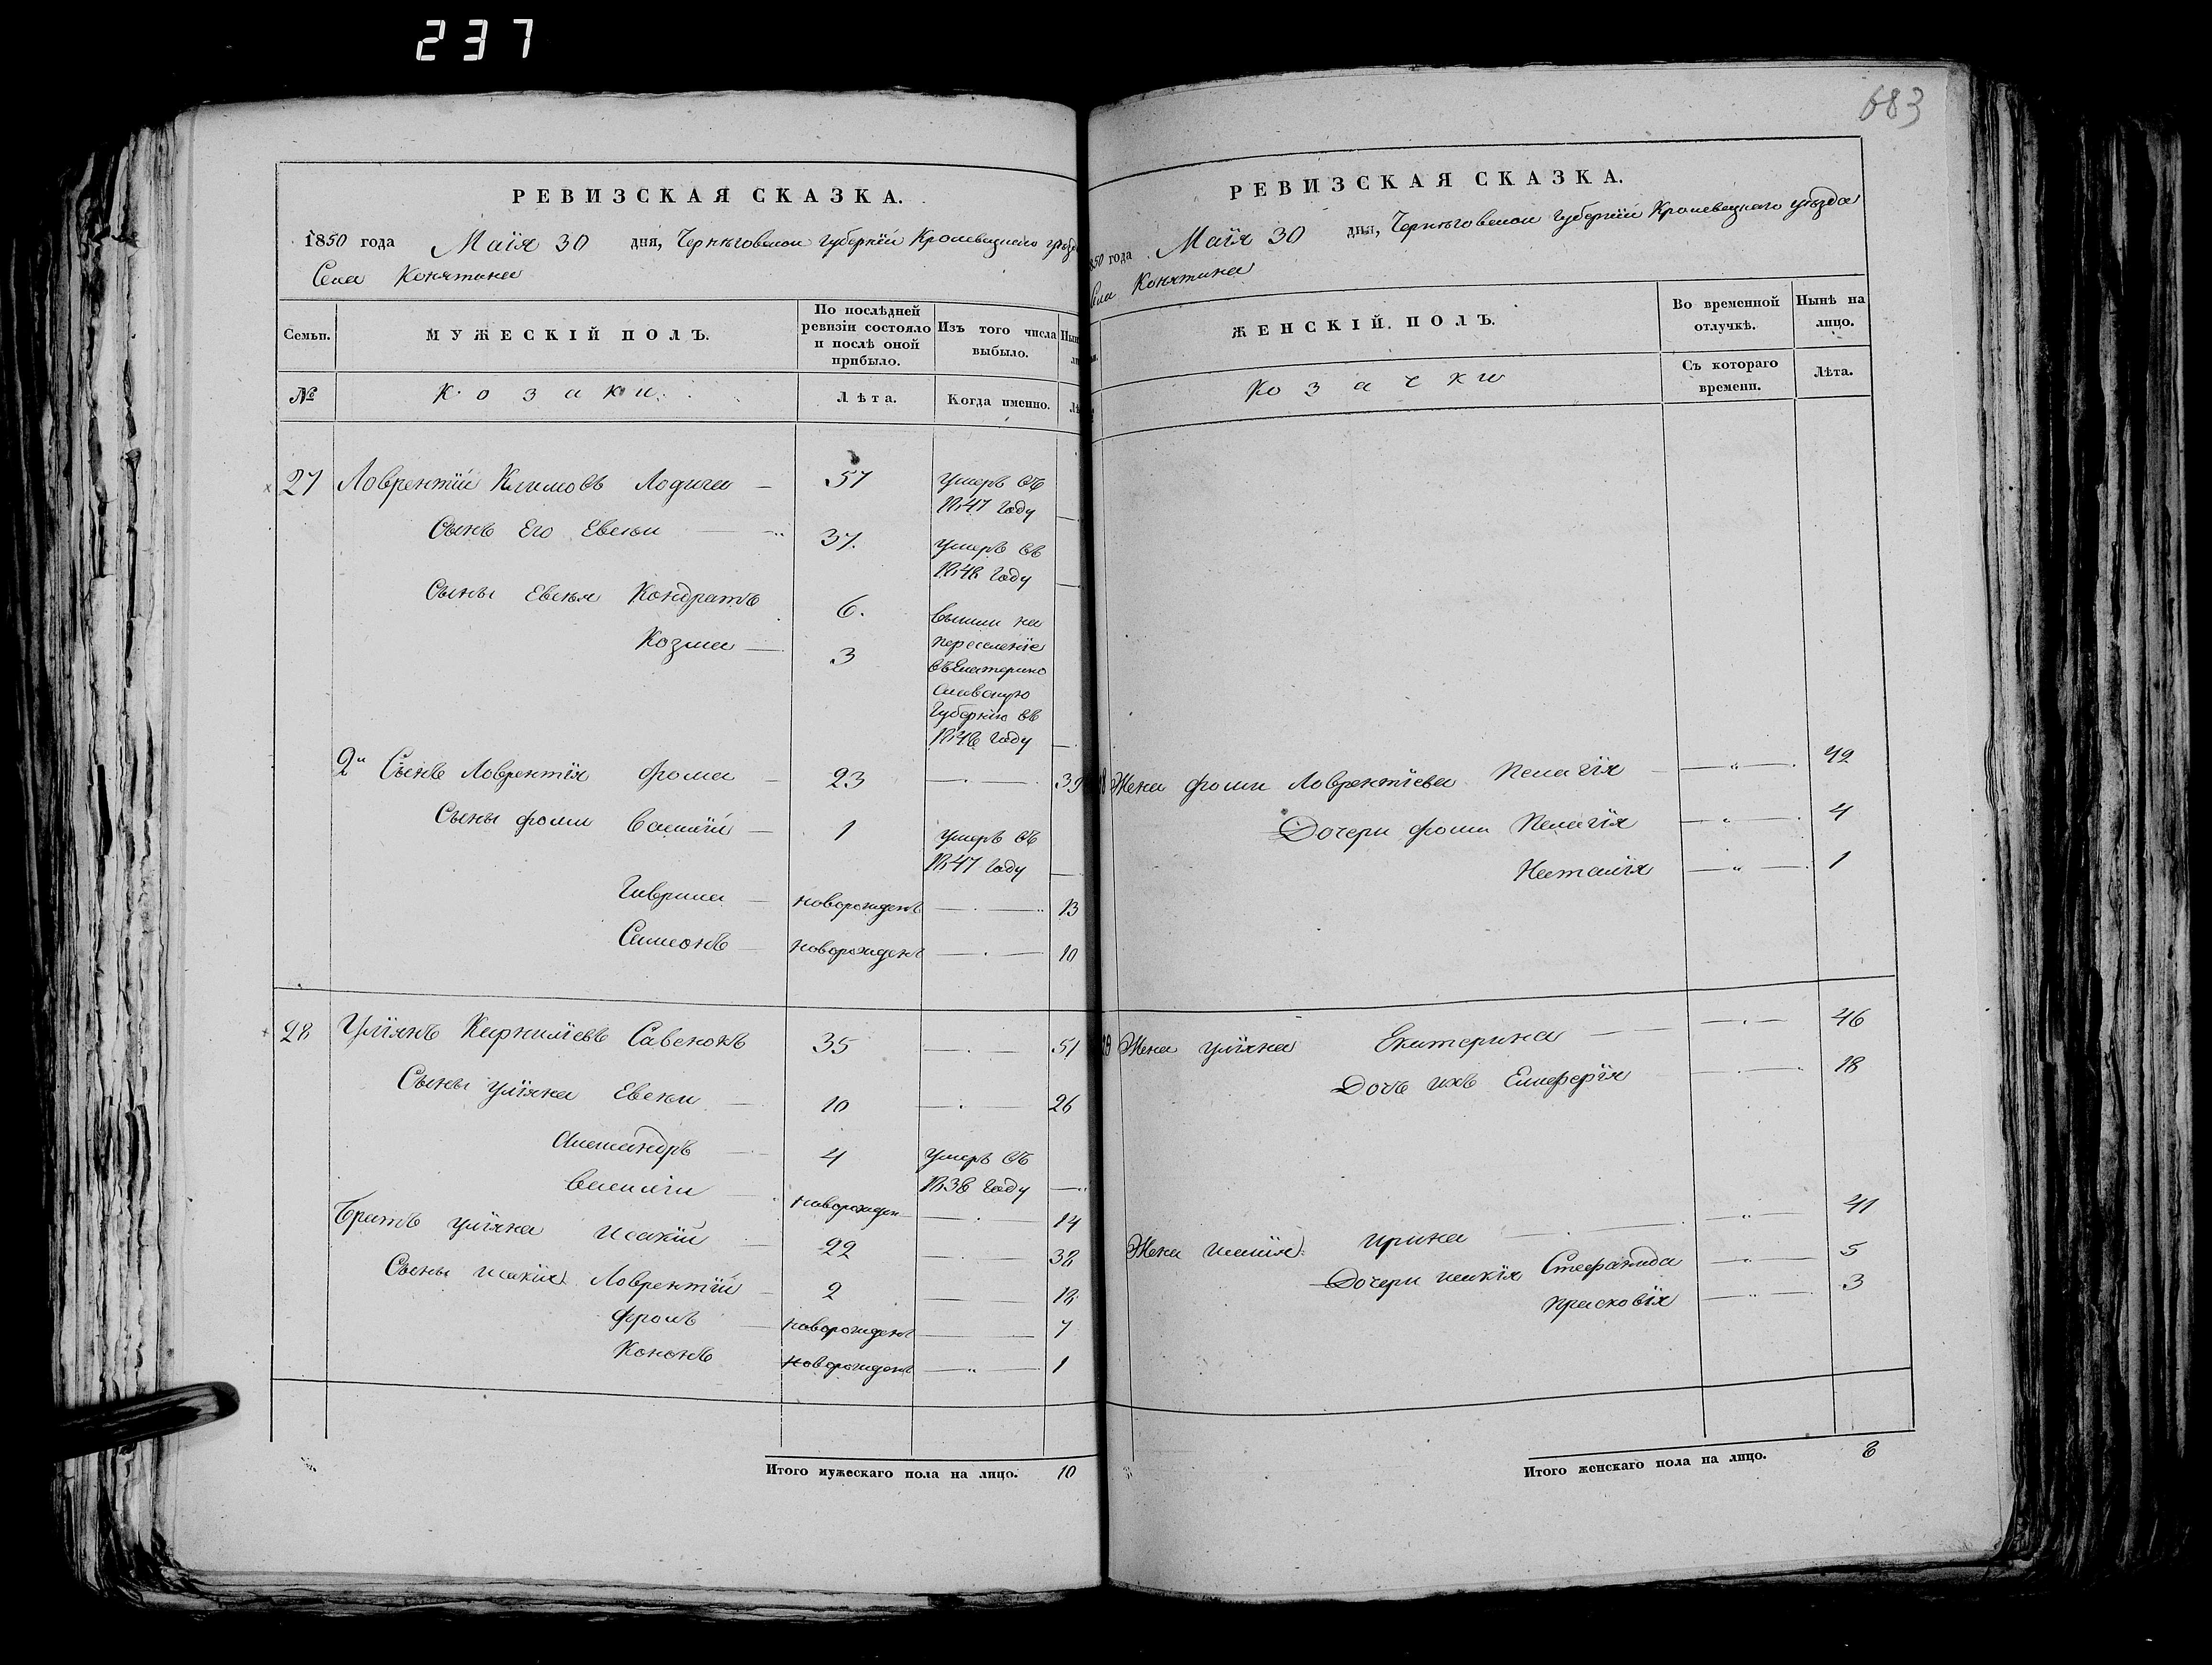 237
683
РЕВИЗСКАЯ СКАЗКА.
1850 года Маія 30 дня, Черниговской губерніи Кролевецкаго уѣзда
Села Конятина
Семьи.
МУЖЕСКІЙ ПОЛЪ.
По послѣдней ревизіи состояло и послѣ оной прибыло.
Изъ того числа выбыло.
№
Козаки.
Лѣта.
Когда именно.
27 Ловрентій Климовъ Лодыга 57 умеръ въ
1847 году
Сынъ Его Евсѣй 37. умеръ въ
1848 году
Сыны Евсѣя Кондратъ 6. вышли на
Козма 3 переселеніе
въ Екатерино
славскую
Губернію въ
1848 году
2й Сынъ Ловрентія Фома 23 39
Сыны Фомы Василій 1 умеръ въ
1847 году
Гаврила новорожденъ 13
Симонъ новорожденъ 10
28 Уліянъ Карниліевъ Савенокъ 35 51
Сыны Уліяна Евсѣй 10 26
Александръ 4 умеръ въ
1838 году
Василій новорожден 14
Братъ Уліяна Исакій 22 38
Сыны Исакія Ловрентій 2 18
Фролъ новорожденъ 7
Кононъ новорожденъ 1
Итого мужескаго пола на лицо. 10
РЕВИЗСКАЯ СКАЗКА.
1850 года Маія 30 дня, Черниговской губерніи Кролевецкаго уѣзда
Села Конятина
ЖЕНСКІЙ ПОЛЪ.
Во временной отлучкѣ.
Нынѣ на лицо.
Козачки
Съ котораго времени.
Лѣта.
Жена Фомы Ловрентіева Пелагія 42
Дочери Фомы Пелагія 4
Наталія 1
28 Жена Уліяна Екатерина 46
Дочь ихъ Елиферія 18
Жена Исакія Ирина 41
Дочери Исакія Стефанида 5
Прасковія 3
Итого женскаго пола на лицо. 8